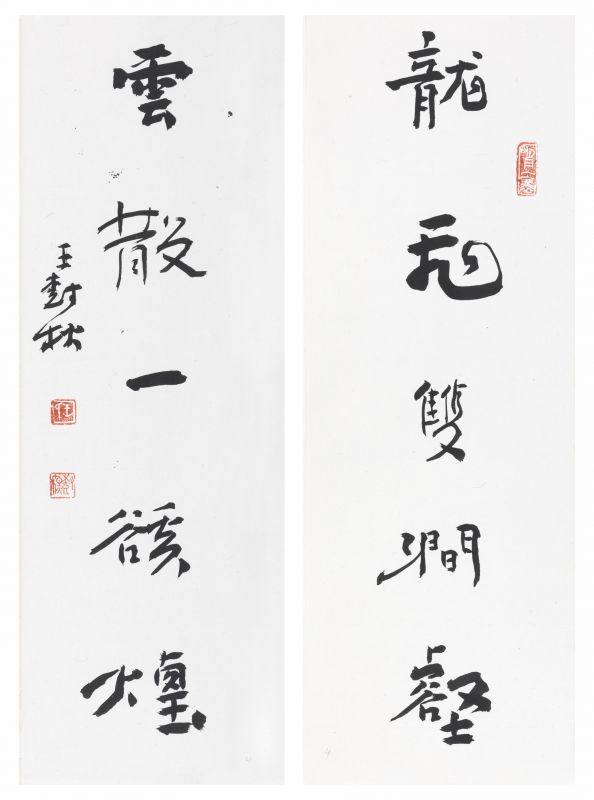 龍飛雙澗壑
雲散一谿煙
王 秋